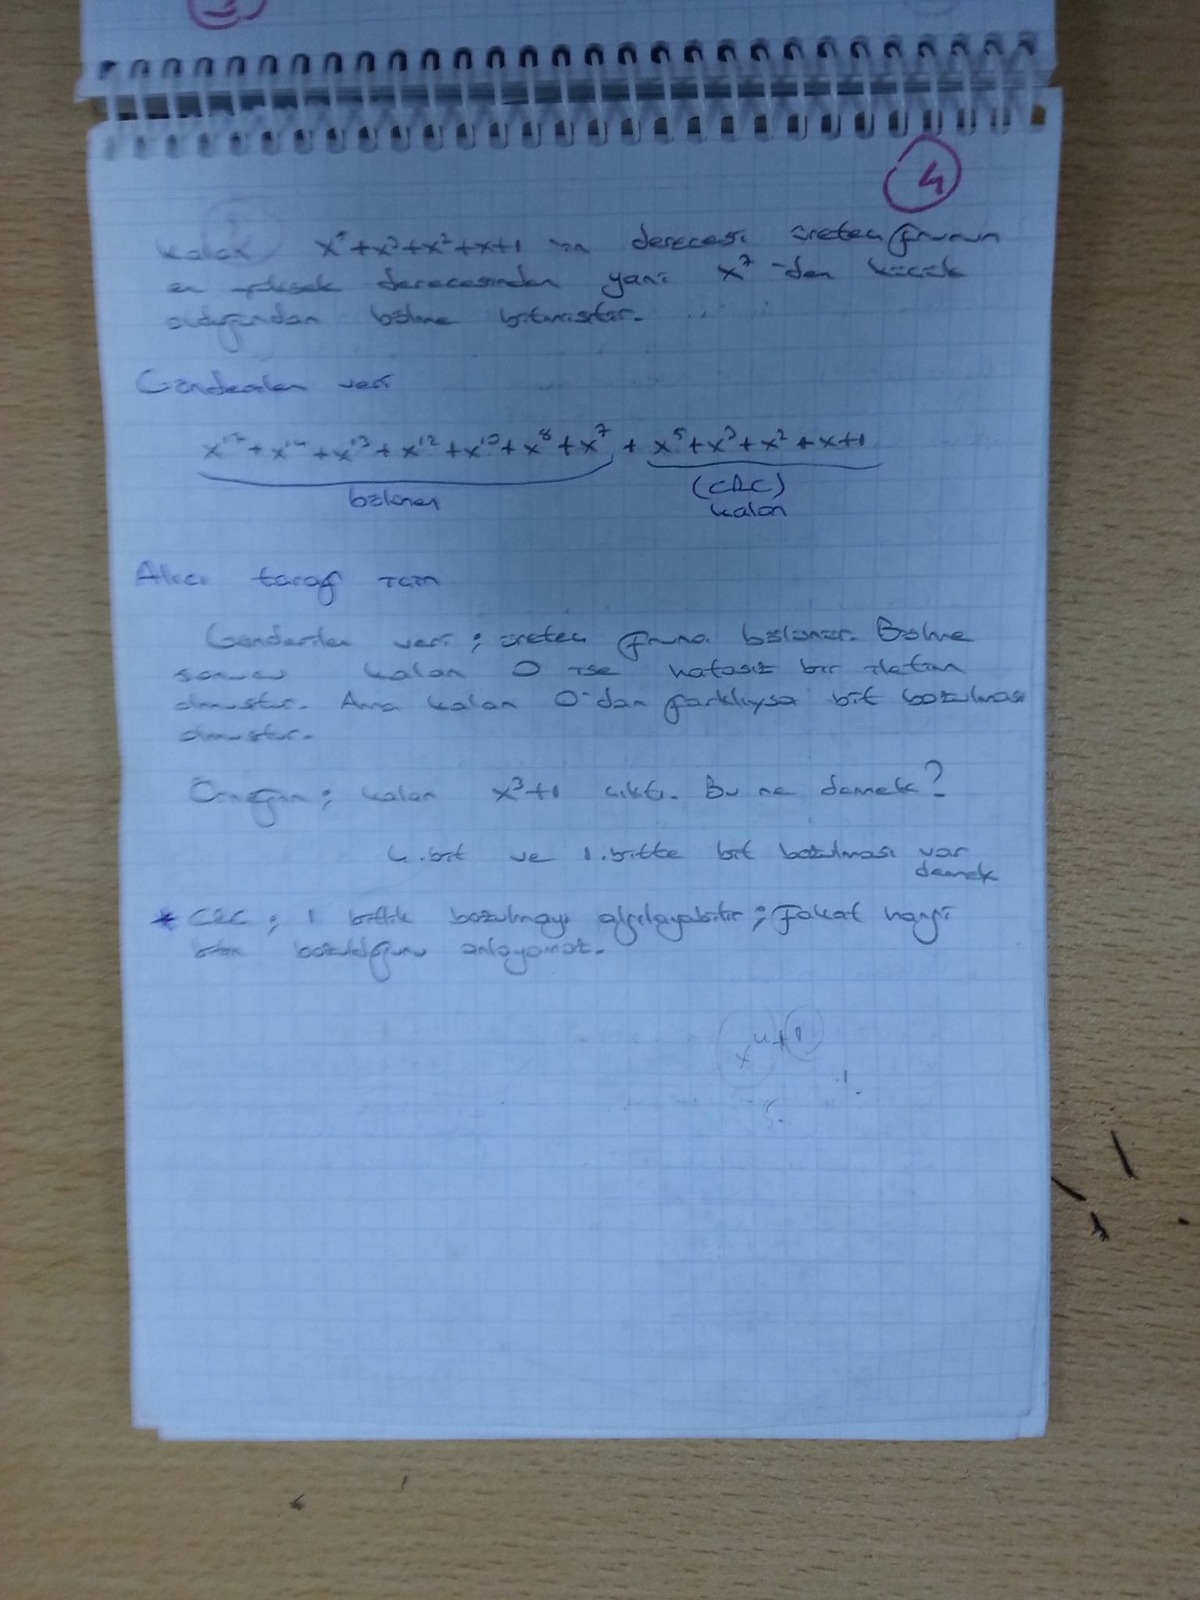 4
kalan x⁵+x³+x²+x+1 in derecesi üreteç fnunun
en yüksek derecesinden yani x⁷-den küçük
olduğundan bölme bitmiştir.
Gönderilen veri
+ x¹⁴ + x¹³ + x¹² + x¹⁰ + x⁸ + x⁷ + x⁵ + x³ + x² + x+1
bölünen (CRC)
kalan
Alıcı taraf için
Gönderilen veri ; üreteç fnuna bölünür. Bölme
sonucu kalan 0 ise hatasız bir iletim
olmuştur. Ama kalan 0'dan farklıysa bit bozulması
olmuştur.
Örneğin ; kalan x³+1 çıktı. Bu ne demek?
4.bit ve 1.bitte bit bozulması var
demek
* CRC ; 1 bitlik bozulmayı algılayabilir ; fakat hangi
bitin bozulduğunu anlayamaz.
x⁴+1
1.
5.